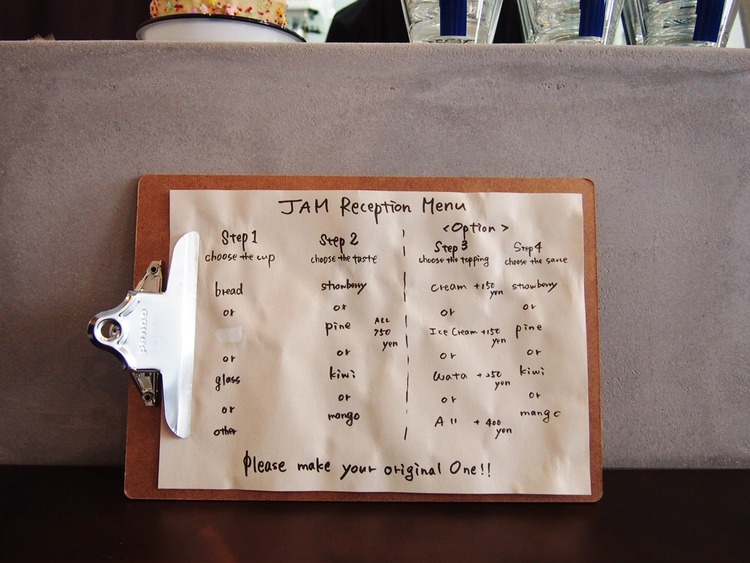 JAM Reception Menu
Step 1
choose the cup
bread
or
or
glass
or
other
Step 2
choose the taste
strawberry
or
pine
or
kiwi
or
mango
ALL
750
yen
<Option>
Step 3
choose the topping
cream +150
yen
or
Ice Cream +150
yen
or
wata +250
yen
or
All +400
yen
Step 4
choose the sauce
strawberry
or
pine
or
kiwi
or
mango
Please make your original One!!